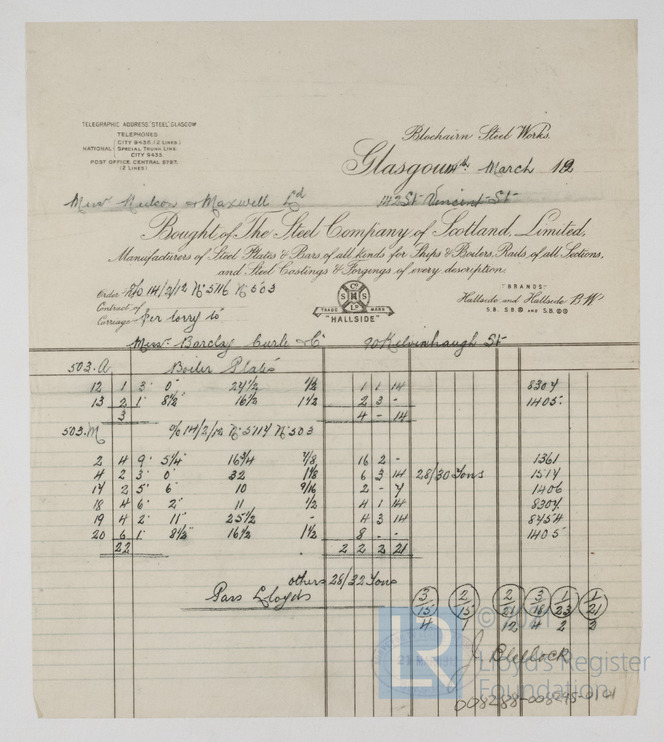 TELEGRAPHIC ADDRESS "STEEL", GLASGOW
TELEPHONES
NATIONAL { CITY 9435 (2 LINES)
SPECIAL TRUNK LINE
CITY 9435
POST OFFICE CENTRAL 8797.
(2 LINES)
Blochairn Steel Works.
Glasgow, March 12
Messrs Neilson & Maxwell Ld 142 St Vincent St
Bought of The Steel Company of Scotland, Limited,
Manufacturers of Steel Plates & Bars of all kinds for Ships & Boilers, Rails, of all Sections,
and Steel Castings & Forgings of every description.
Order No 14/2/12 No 5116 No 503
Contract of
Carriage Per lorry to
TRADE MARK
"HALLSIDE"
"BRANDS"
Hallside and Hallside B.W.
Messrs Barclay Curle & Co 90 Kelvinhaugh St
503.A Boiler Plates
12 1 3' 0" 24 1/2 1/2 1 1 14 8304
13 2 1' 8 1/2" 16 1/2 1 1/2 2 3 - 1405
3 4 - 14
503.M 14/2/12 No 5117 No 503
2 4 9' 5 1/4" 16 3/4 7/8 16 2 - 1361
4 2 3' 0" 32 1 1/8 6 3 14 28/30 Tons 1514
17 2 5' 6" 10 9/16 2 - 7 1406
18 4 6' 2" 11 1/2 4 1 14 8304
19 4 2' 11" 25 1/2 - 4 3 14 8454
20 6 1' 8 1/2" 16 1/2 1 1/2 8 - - 1405
22 2 2 2 21
others 28/32 Tons
Pass Lloyds
3/15 2/15 2/21 3/18 1/23 1/21
4 1 12 4 2 2
LR
Lloyd's Register
Foundation
008288-008295-0141